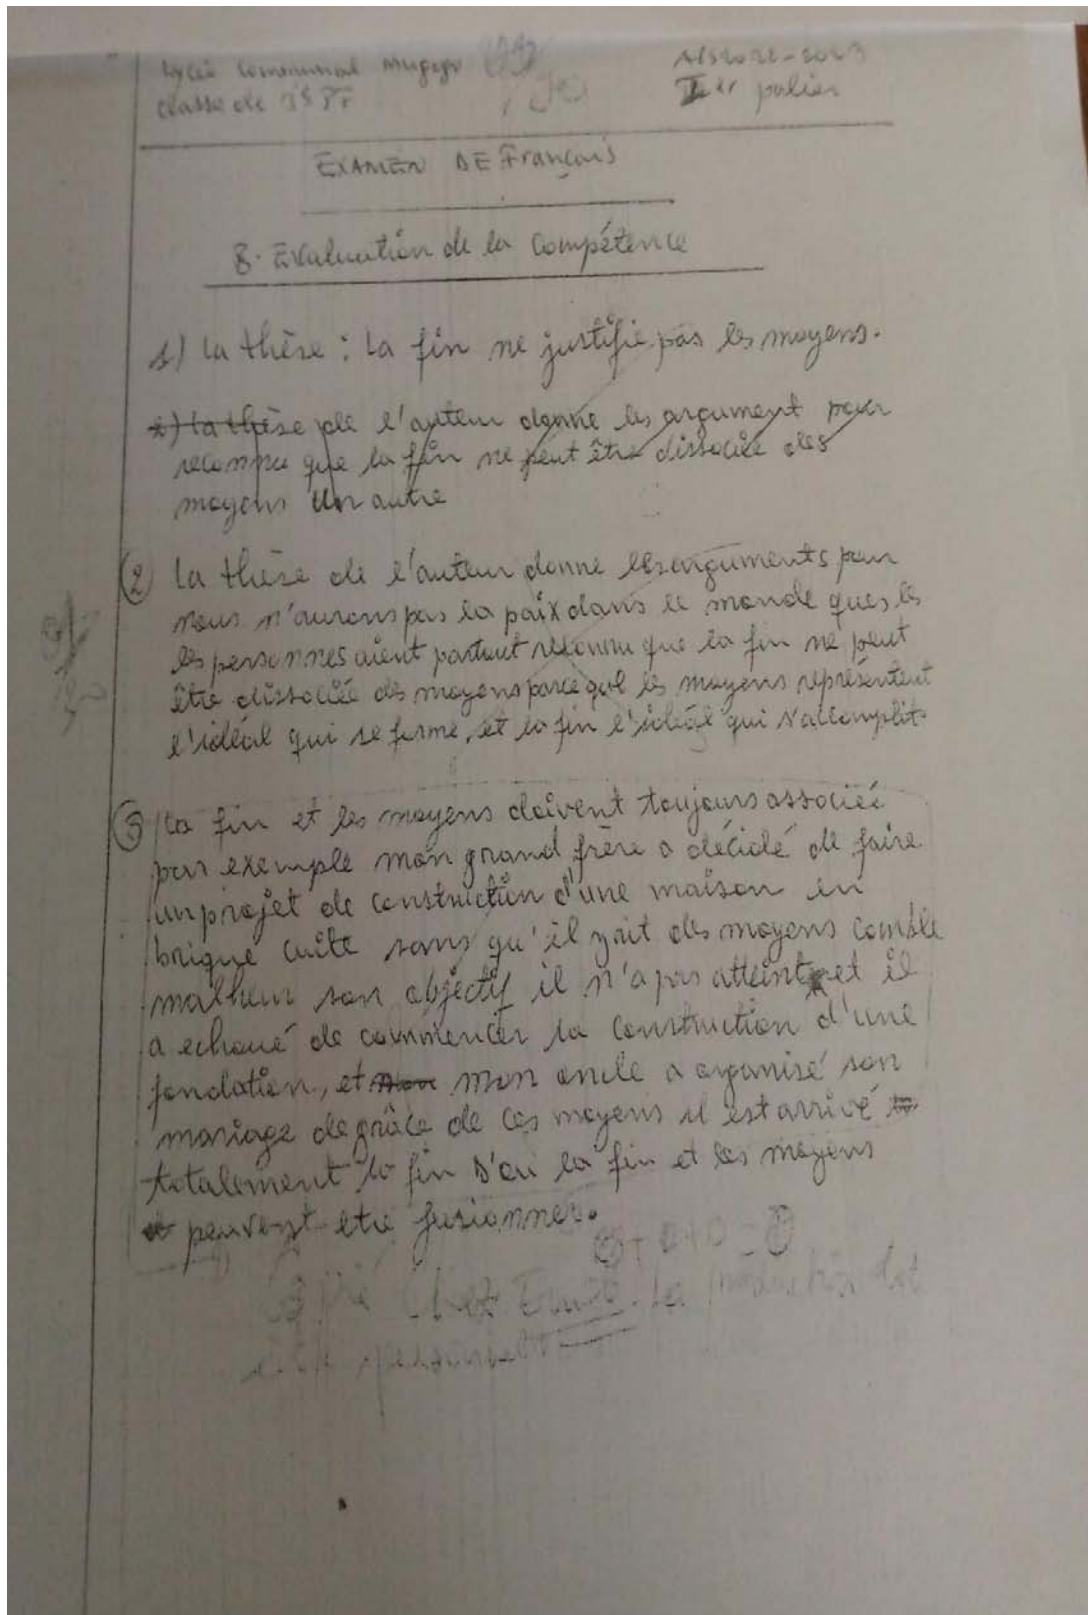 Lycée Communal Mugogo
A/S 2022-2023
Classe de
palier
EXAMEN DE Français
B. Evaluation de la compétence
1) La thèse : La fin ne justifie pas les moyens.
2) La thèse de l'auteur donne les argument pour
reconnu que la fin ne peut être dissociée des
moyens Un autre
2 La thèse de l'auteur donne les arguments pour
nous n'aurons pas la paix dans le monde ques les
les personnes aient partout reconnu que la fin ne peut
être dissociée des moyens parce que les moyens représentent
l'idéal qui se forme, et la fin l'idéal qui s'accomplit.
3 La fin et les moyens doivent toujours associéé
par exemple mon grand frère a décidé de faire
un projet de construction d'une maison en
brique cuite sans qu'il y ait des moyens comble
malheur son objectif il n'a pas atteint et il
a echoué de commencer la construction d'une
fondation, et mon oncle a organisé son
mariage de grâce de ces moyens il est arrivé
totalement la fin D'où la fin et les moyens
peuvent etre fusionner.
la production
personnel